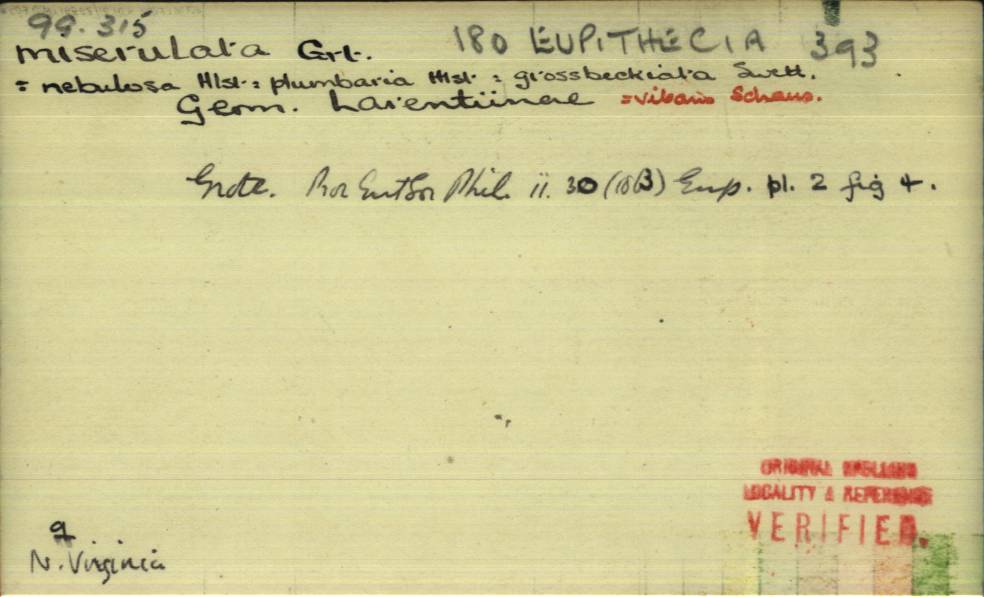 99.315
miserulata Grt. 180 EUPITHECIA 393
= nebulosa Hlst. = plumbaria Hlst. = grossbeckiata Swett.
Geom. Larentiinae = vibans Schaus.
Grote. Proc Ent Soc Phil. ii. 30 (1863) Eup. pl. 2 fig 4.
ORIGINAL
LOCALITY & REFERENCE
VERIFIED.
N. Virginia